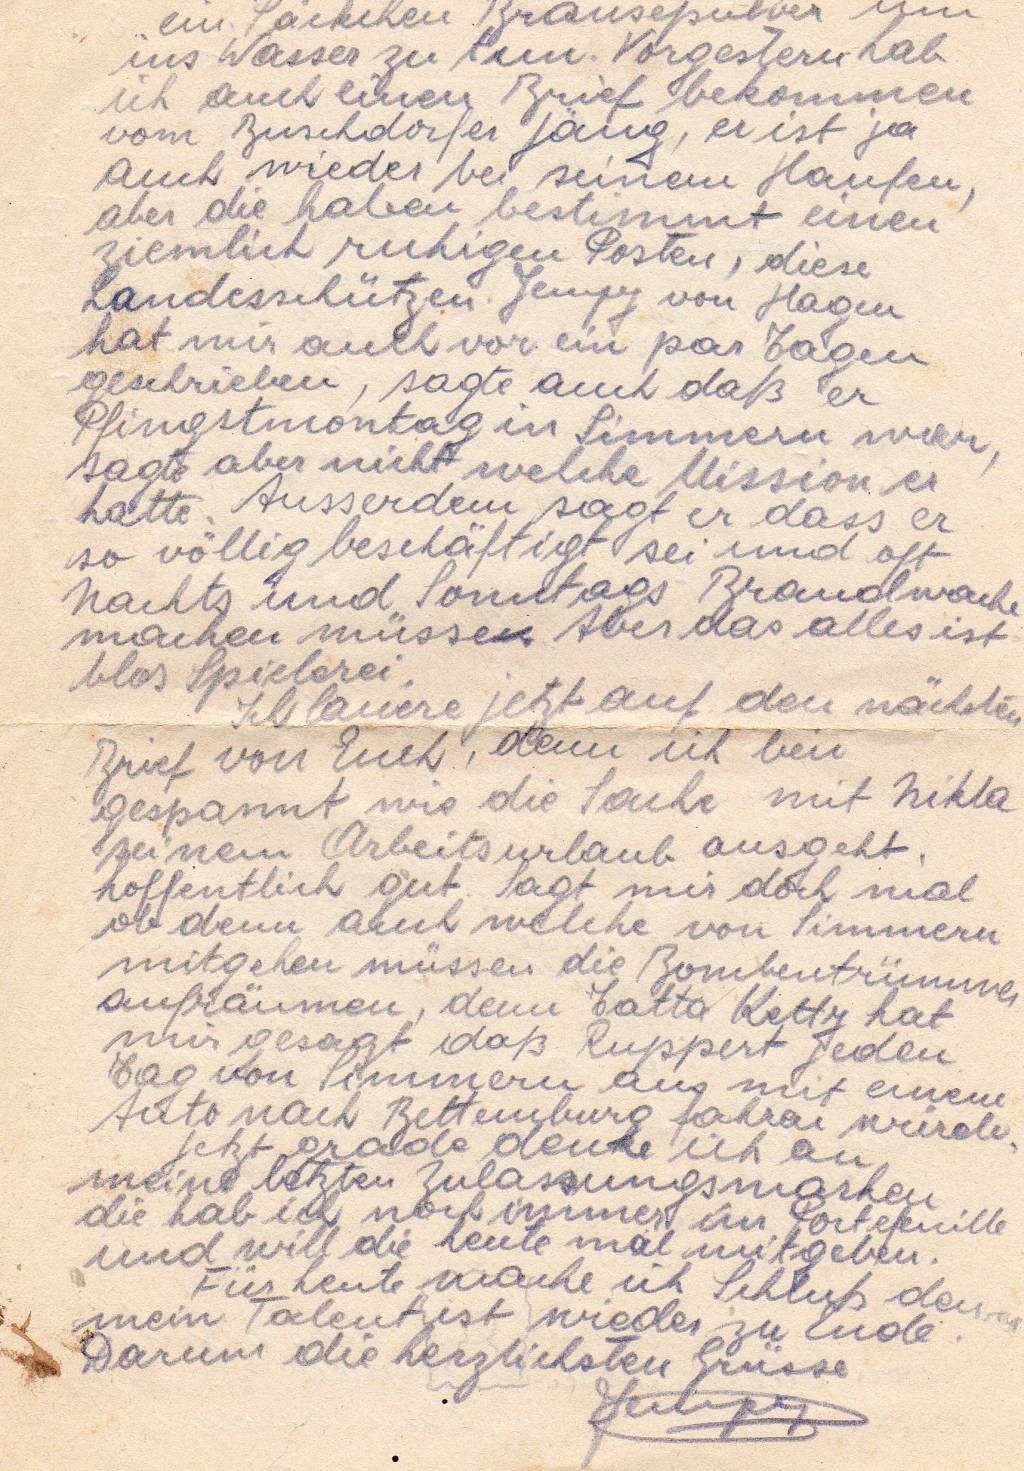 ein Päckchen Brausepulver um
ins Wasser zu tun. Vorgestern hab
ich auch einen Brief bekommen
vom Buschdorfer Jäng, er ist ja
auch wieder bei seinem Haufen,
aber die haben bestimmt einen
ziemlich ruhigen Posten, diese
Landesschützen. Jempy von Hagen
hat mir auch vor ein par Tagen
geschrieben, sagte auch daß er
Pfingstmontag in Simmern war,
sagte aber nicht welche Mission er
hatte. Ausserdem sagt er dass er
so völlig beschäftigt sei und oft
Nachts und Sonntags Brandwache
machen müssen. Aber das alles ist
blos Spielerei.
Ich lauere jetzt auf den nächsten
Brief von Euch, denn ich bin
gespannt wie die Sache mit Nikla
seinem Arbeitsurlaub ausgeht,
hoffentlich gut. Sagt mir doch mal
ob denn auch welche von Simmern
mitgehen müssen die Bombentrümmer
aufräumen, denn Tatta Ketty hat
mir gesagt daß Ruppert jeden
Tag von Simmern aus mit einem
Auto nach Bettemburg fahren würde.
Jetzt grade denke ich an
meine letzten Zulassungsmarken
die hab ich noch immer im Portefeuille
und will die heute mal mitgeben.
Für heute mache ich Schluß denn
mein Talent ist wieder zu Ende.
Darum die herzlichsten Grüsse
Jempy